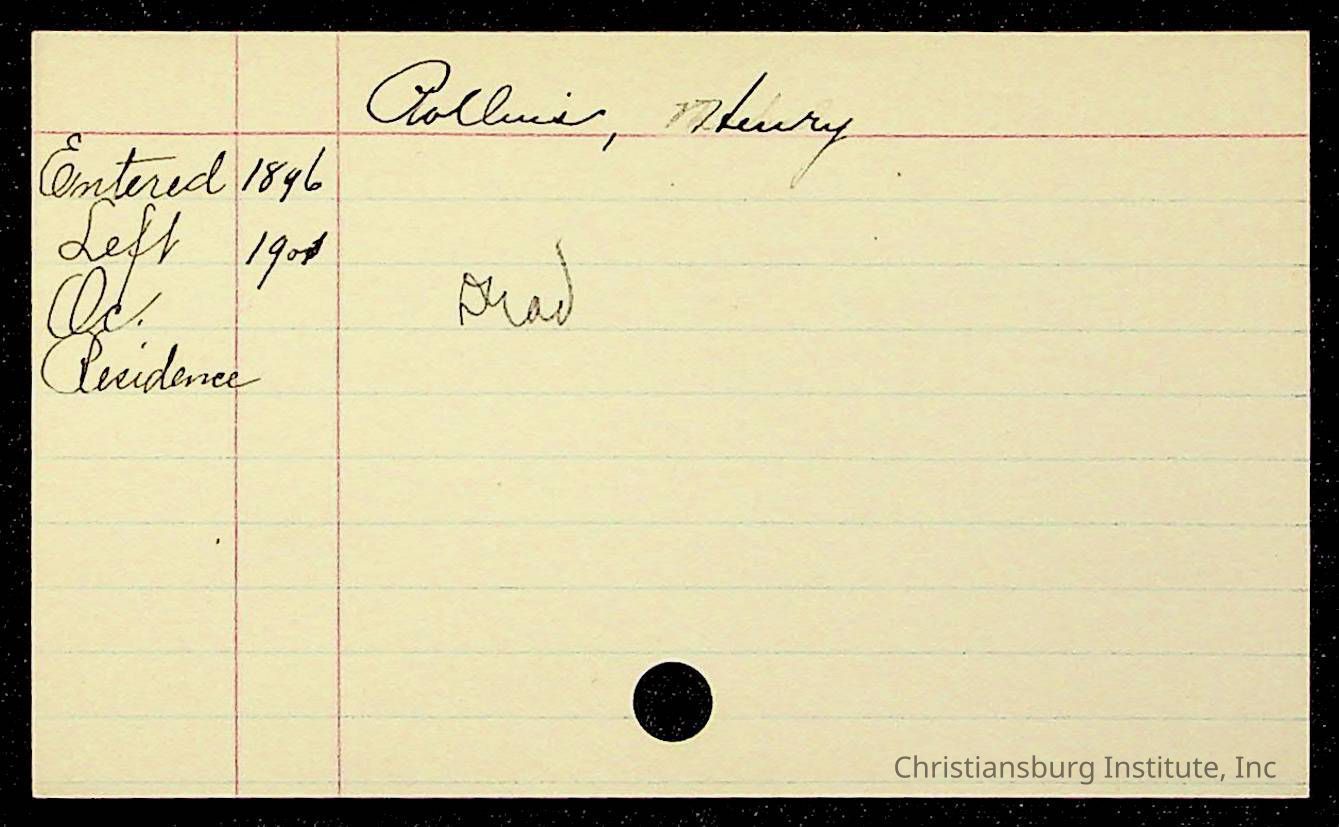 Rollins, Henry
Entered 1896
Left
Oc.
Dead
Residence
Christiansburg Institute, Inc